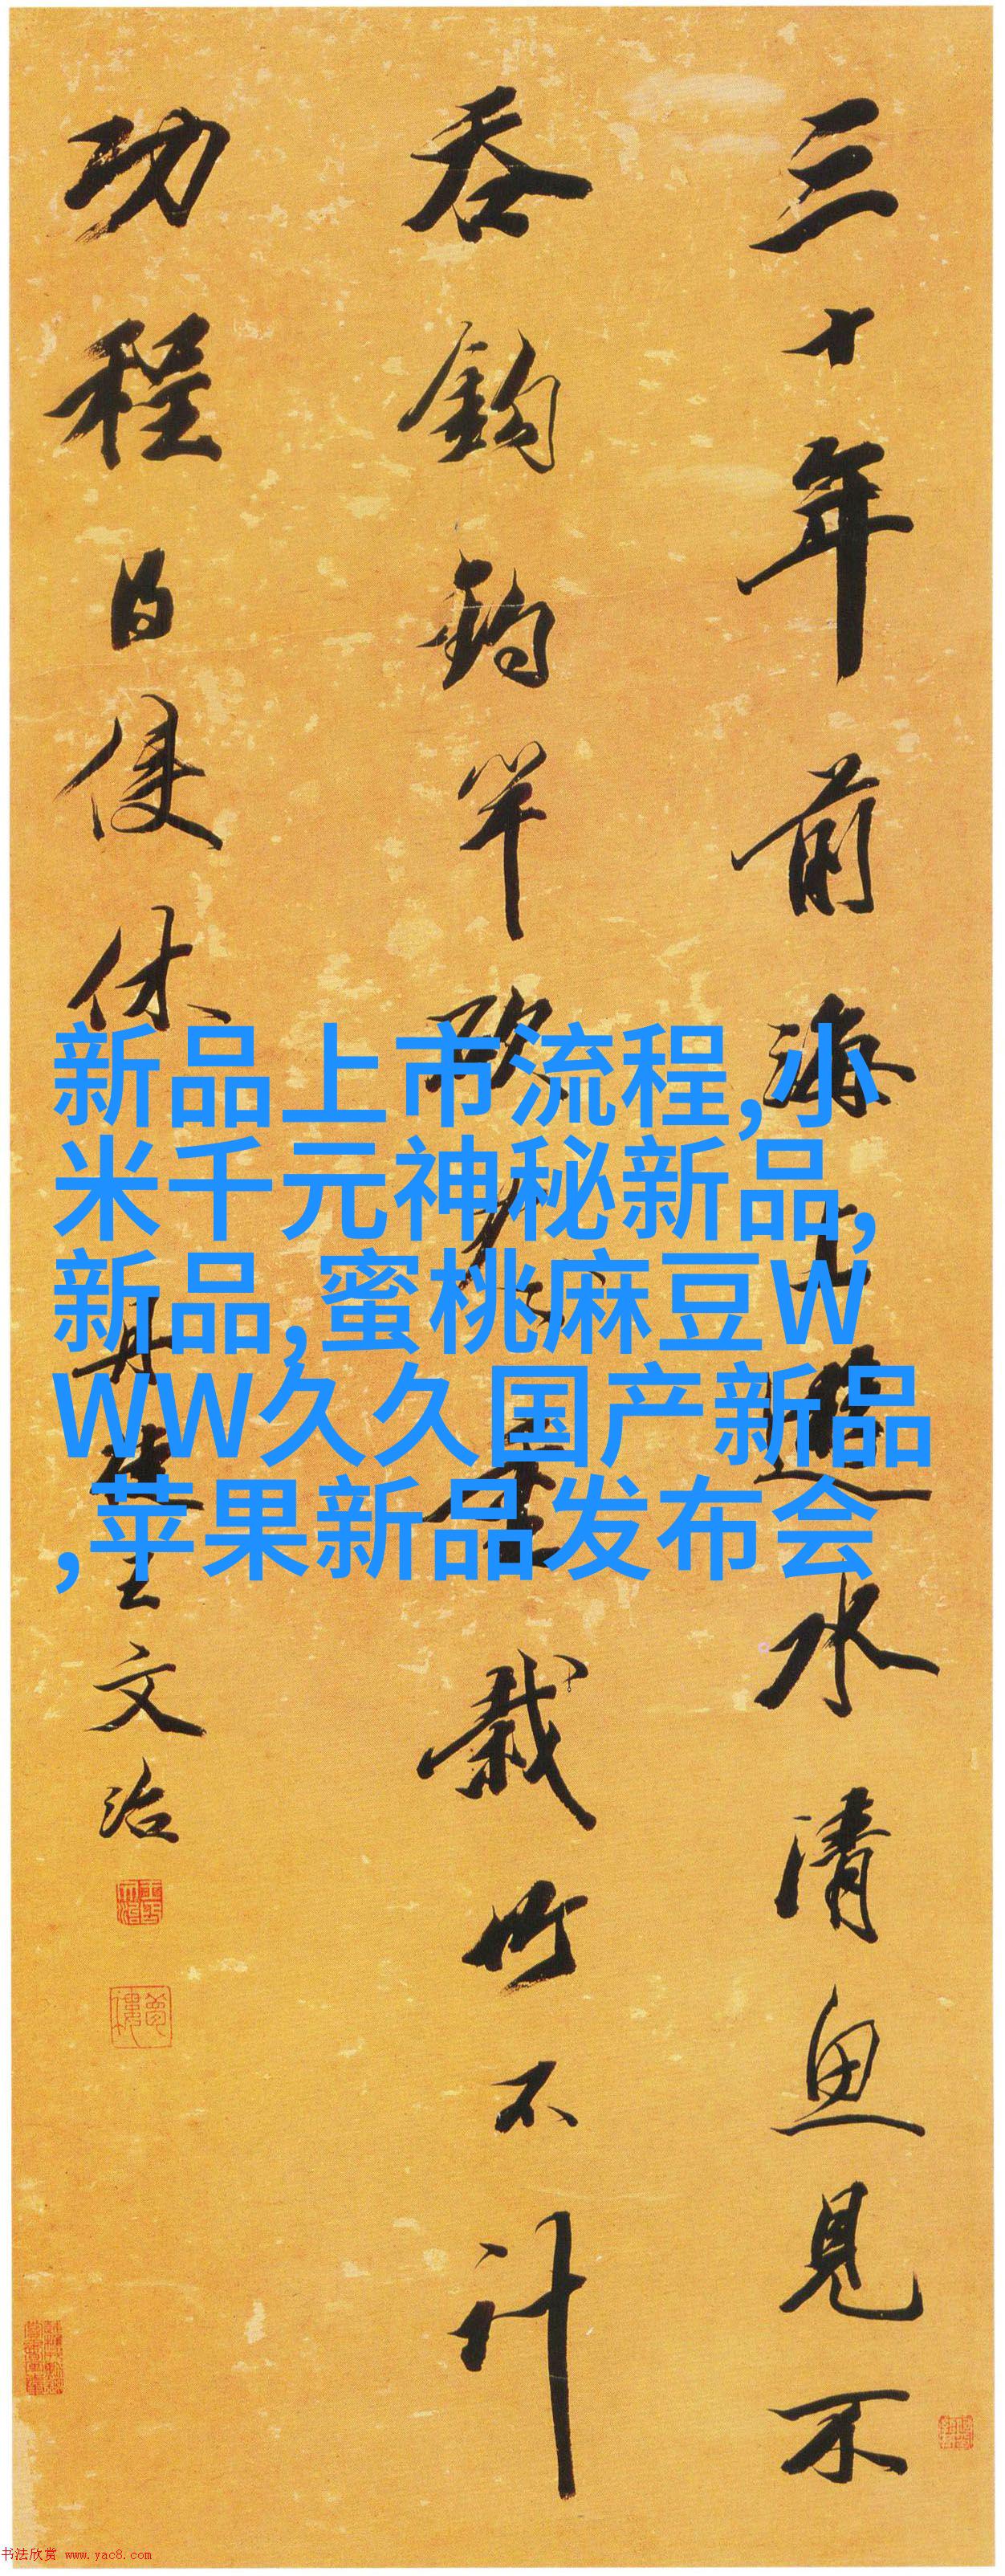 三十年前海上遊水清魚見不
吞鈎釣竿斫尽重栽竹不計
功程得便休
丹徒王文治
新品上市流程,小
米千元神秘新品,
新品,蜜桃麻豆W
WW久久国产新品
,苹果新品发布会
书法欣赏 www.yac8.com